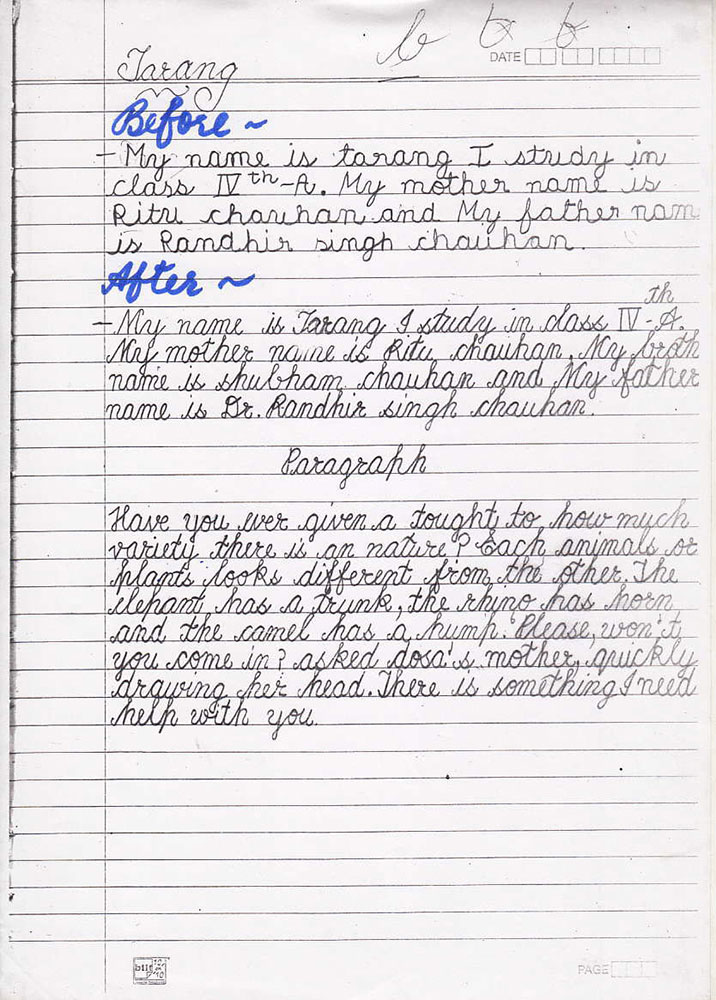 b b b
DATE
Tarang
Before ~
- My name is tarang I study in
class IVth-A. My mother name is
Ritu chauhan and My father nam
is Randhir singh chauhan.
After ~
th
- My name is Tarang I study in class IV-A.
My mother name is Ritu chauhan. My broth
name is shubham chauhan and My father
name is Dr. Randhir singh chauhan.
Paragraph
Have you ever given a tought to how much
variety there is an nature? Each animals or
plants looks different from the other. The
elephant has a trunk, the rhino has horn
and the camel has a hump. 'Please, won't
you come in? asked dosa's mother, quickly
drawing her head. There is something I need
help with you.
bilt
PAGE